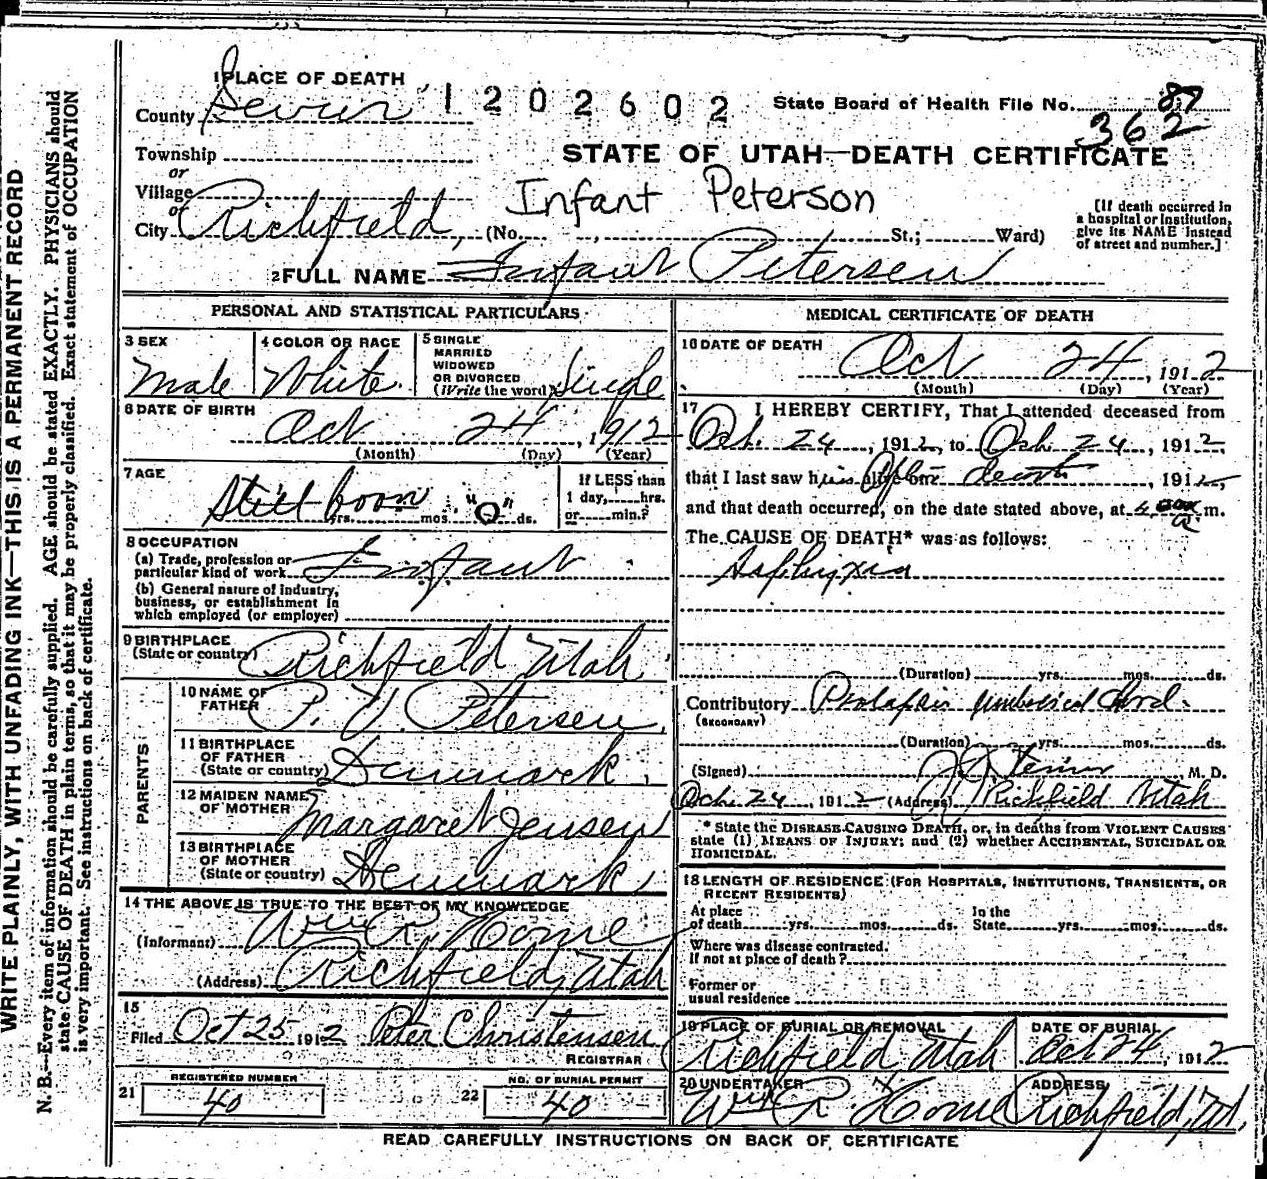 1 PLACE OF DEATH
County Sevier
1202602
State Board of Health File No. 87
362
Township
or
Village
or
City Richfield, (No. , St.; Ward)
STATE OF UTAH—DEATH CERTIFICATE
Infant Peterson
[If death occurred in
a hospital or institution,
give its NAME instead
of street and number.]
2 FULL NAME Infant Petersen
PERSONAL AND STATISTICAL PARTICULARS
3 SEX
Male
4 COLOR OR RACE
White.
5 SINGLE
MARRIED
WIDOWED
OR DIVORCED
(Write the word) Single
6 DATE OF BIRTH
Oct 24, 1912
(Month) (Day) (Year)
7 AGE
Still born yrs. mos. "0" ds.
If LESS than
1 day, hrs.
or min.?
8 OCCUPATION
(a) Trade, profession or
particular kind of work Infant
(b) General nature of industry,
business, or establishment in
which employed (or employer)
9 BIRTHPLACE
(State or country) Richfield Utah
PARENTS
10 NAME OF
FATHER P. V. Petersen
11 BIRTHPLACE
OF FATHER
(State or country) Denmark.
12 MAIDEN NAME
OF MOTHER Margaret Jensen
13 BIRTHPLACE
OF MOTHER
(State or country) Denmark
14 THE ABOVE IS TRUE TO THE BEST OF MY KNOWLEDGE
(Informant) Wm R. Horne
(Address) Richfield, Utah
15
Filed Oct 25 1912 Peter Christensen
REGISTRAR
21 REGISTERED NUMBER
40
22 NO. OF BURIAL PERMIT
40
MEDICAL CERTIFICATE OF DEATH
16 DATE OF DEATH
Oct 24, 1912
(Month) (Day) (Year)
17 I HEREBY CERTIFY, That I attended deceased from
Oct. 24, 1912, to Oct. 24, 1912,
that I last saw him alive on death, 1912,
and that death occurred, on the date stated above, at 4 a m.
The CAUSE OF DEATH* was as follows:
Asphyxia
(Duration) yrs. mos. ds.
Contributory Prolapsis umbilical Cord.
(SECONDARY)
(Duration) yrs. mos. ds.
(Signed) M. D.
Oct. 24, 1912 (Address) Richfield Utah
* State the DISEASE CAUSING DEATH, or, in deaths from VIOLENT CAUSES
state (1) MEANS OF INJURY; and (2) whether ACCIDENTAL, SUICIDAL OR
HOMICIDAL.
18 LENGTH OF RESIDENCE (FOR HOSPITALS, INSTITUTIONS, TRANSIENTS, OR
RECENT RESIDENTS)
At place
of death yrs. mos. ds.
In the
State yrs. mos. ds.
Where was disease contracted.
If not at place of death?
Former or
usual residence
19 PLACE OF BURIAL OR REMOVAL
Richfield Utah
DATE OF BURIAL
Oct 24, 1912
20 UNDERTAKER
Wm R. Horne
ADDRESS
Richfield, Ut.
READ CAREFULLY INSTRUCTIONS ON BACK OF CERTIFICATE
WRITE PLAINLY, WITH UNFADING INK—THIS IS A PERMANENT RECORD
N. B.—Every item of information should be carefully supplied. AGE should be stated EXACTLY. PHYSICIANS should
state CAUSE OF DEATH in plain terms, so that it may be properly classified. Exact statement of OCCUPATION
is very important. See instructions on back of certificate.